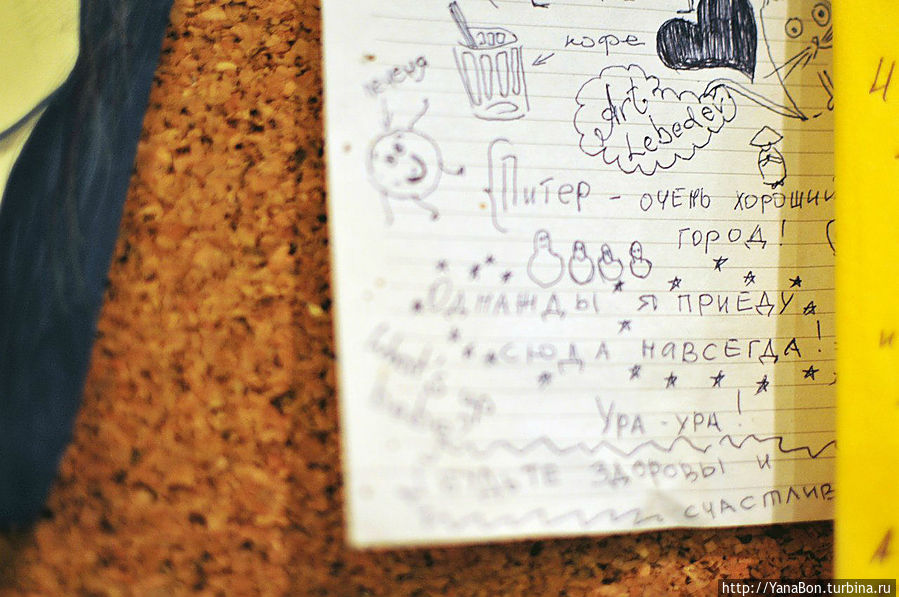 200
кофе
Art.
Lebedev
Питер - очень хороший
город!
Однажды я приеду
сюда навсегда!
Ура-ура!
будьте здоровы и
счастлив
http://YanaBon.turbina.ru